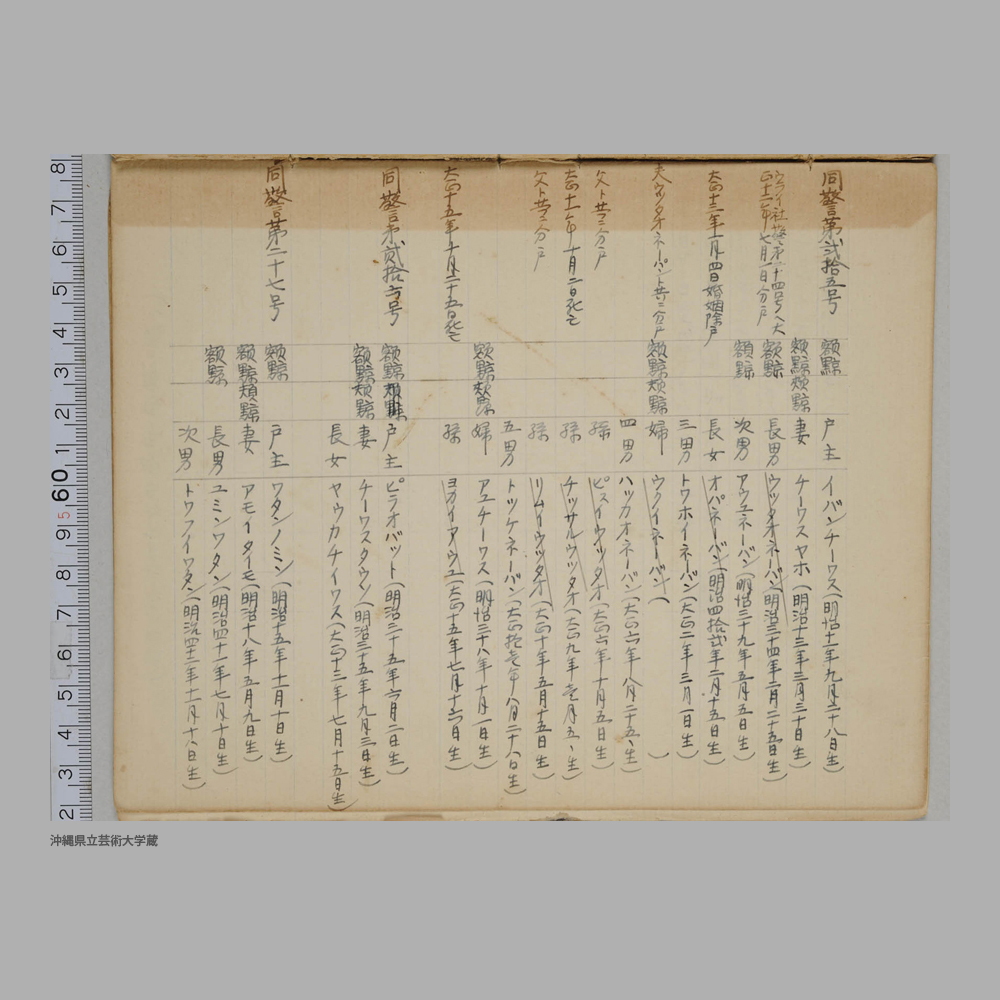 同警第弐拾五号 額黥 戸主 イバンチーワス(明治十一年九月二十八日生)
額黥頬黥 妻 チーワスヤホ(明治十三年三月三十日生)
ウライ社警第二十四号ヘ大正十二年七月一日分戸 額黥 長男 ウツタオネーバン(明治三十四年二月二十五日生)
額黥 次男 アウユネーバン(明治三十九年五月五日生)
大正十三年一月四日婚姻除戸 長女 オパネーバン(明治四拾弐年二月十五日生)
三男 トワホイネーバン(大正二年三月一日生)
夫ウツタオネーバント共ニ分戸 額黥頬黥 婦 ウクノイネーバン( )
四男 ハツカオネーバン(大正六年八月二十五、生)
父ト共ニ分戸 孫 ピスイウツタオ(大正六年十月五日生)
大正十一年十月二日死亡 孫 チツサルウツタオ(大正九年壱月五、生)
父ト共ニ分戸 孫 リムイウツタオ(大正十年五月十五日生)
五男 トツケネーバン(大正拾壱年八月二十八日生)
額黥頬黥 婦 アユチーワス(明治三十八年十月一日生)
大正十五年十月二十五日死亡 孫 ヨカイアウユ(大正十五年七月十六日生)
同警第弐拾六号 額黥頬黥 戸主 ピラオバツト(明治三十五年六月二日生)
額黥頬黥 妻 チーワスタウノ(明治三十五年九月三日生)
長女 ヤウカチイワス(大正十三年七月十五日生)
同警第二十七号 額黥 戸主 ワタンノミン(明治十五年十一月十日生)
額黥頬黥 妻 アモイタイモ(明治十八年五月九日生)
額黥 長男 ユミンワタン(明治四十一年七月十日生)
次男 トワフイワタン(明治四十二年十一月十八日生)
8 7 6 5 4 3 2 1 60 9 8 7 6 5 4 3 2
5
沖縄県立芸術大学蔵